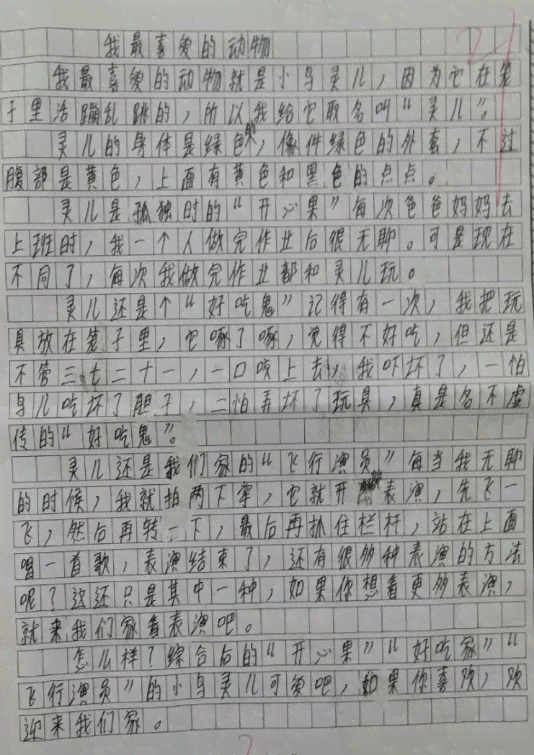 我最喜爱的动物
我最喜爱的动物就是小鸟灵儿，因为它在笼
子里活蹦乱跳的，所以我给它取名叫“灵儿”。
灵儿的身体是绿色的，像件绿色的外套，不过
腹部是黄色，上面有黄色和黑色的点点。
灵儿是孤独时的“开心果”每次爸爸妈妈去
上班时，我一个人做完作业后很无聊。可是现在
不同了，每次我做完作业都和灵儿玩。
灵儿还是个“好吃鬼”记得有一次，我把玩
具放在笼子里，它啄了啄，觉得不好吃，但还是
不管三七二十一，一口咬上去，我吓坏了，一怕
鸟儿吃坏了肚子，二怕弄坏了玩具，真是名不虚
传的“好吃鬼”。
灵儿还是我们家的“飞行演员”每当我无聊
的时候，我就拍两下掌，它就开始表演，先飞一
飞，然后再转一下，最后再抓住栏杆，站在上面
唱一首歌，表演结束了，还有很多种表演的方法
呢？这还只是其中一种，如果你想看更多表演，
就来我们家看表演吧。
怎么样？综合后的“开心果”“好吃家”“
飞行演员”的小鸟灵儿可爱吧，如果你喜欢，欢
迎来我们家。